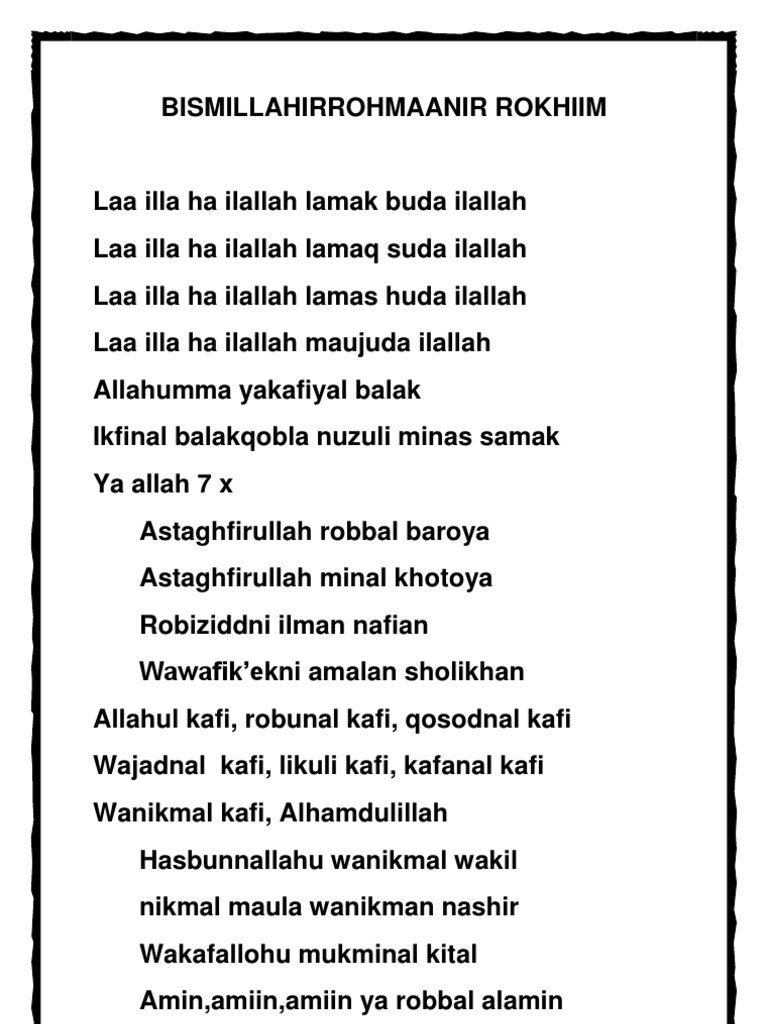 BISMILLAHIRROHMAANIR ROKHIIM
Laa illa ha ilallah lamak buda ilallah
Laa illa ha ilallah lamaq suda ilallah
Laa illa ha ilallah lamas huda ilallah
Laa illa ha ilallah maujuda ilallah
Allahumma yakafiyal balak
Ikfinal balakqobla nuzuli minas samak
Ya allah 7 x
Astaghfirullah robbal baroya
Astaghfirullah minal khotoya
Robiziddni ilman nafian
Wawafik’ekni amalan sholikhan
Allahul kafi, robunal kafi, qosodnal kafi
Wajadnal  kafi, likuli kafi, kafanal kafi
Wanikmal kafi, Alhamdulillah
Hasbunnallahu wanikmal wakil
nikmal maula wanikman nashir
Wakafallohu mukminal kital
Amin,amiin,amiin ya robbal alamin